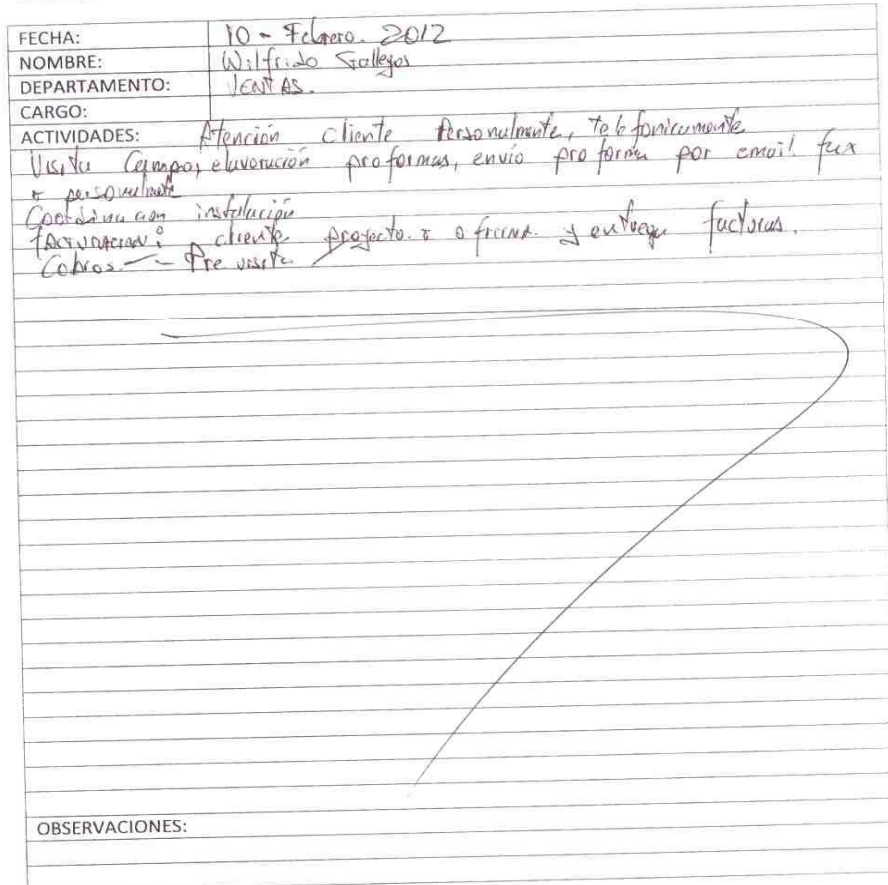 FECHA: 10 - Febrero. 2012
NOMBRE: Wilfrido Gallegos
DEPARTAMENTO: VENTAS.
CARGO:
ACTIVIDADES: Atención cliente Personalmente, telefonicamente
Visita Campo, elavoración proformas, envío proforma por email fax
o personalmente
Coordinacion instalación
FACTURACION: cliente proyecto. o oficina. y entrega facturas.
Cobros. - Pre visita
OBSERVACIONES: